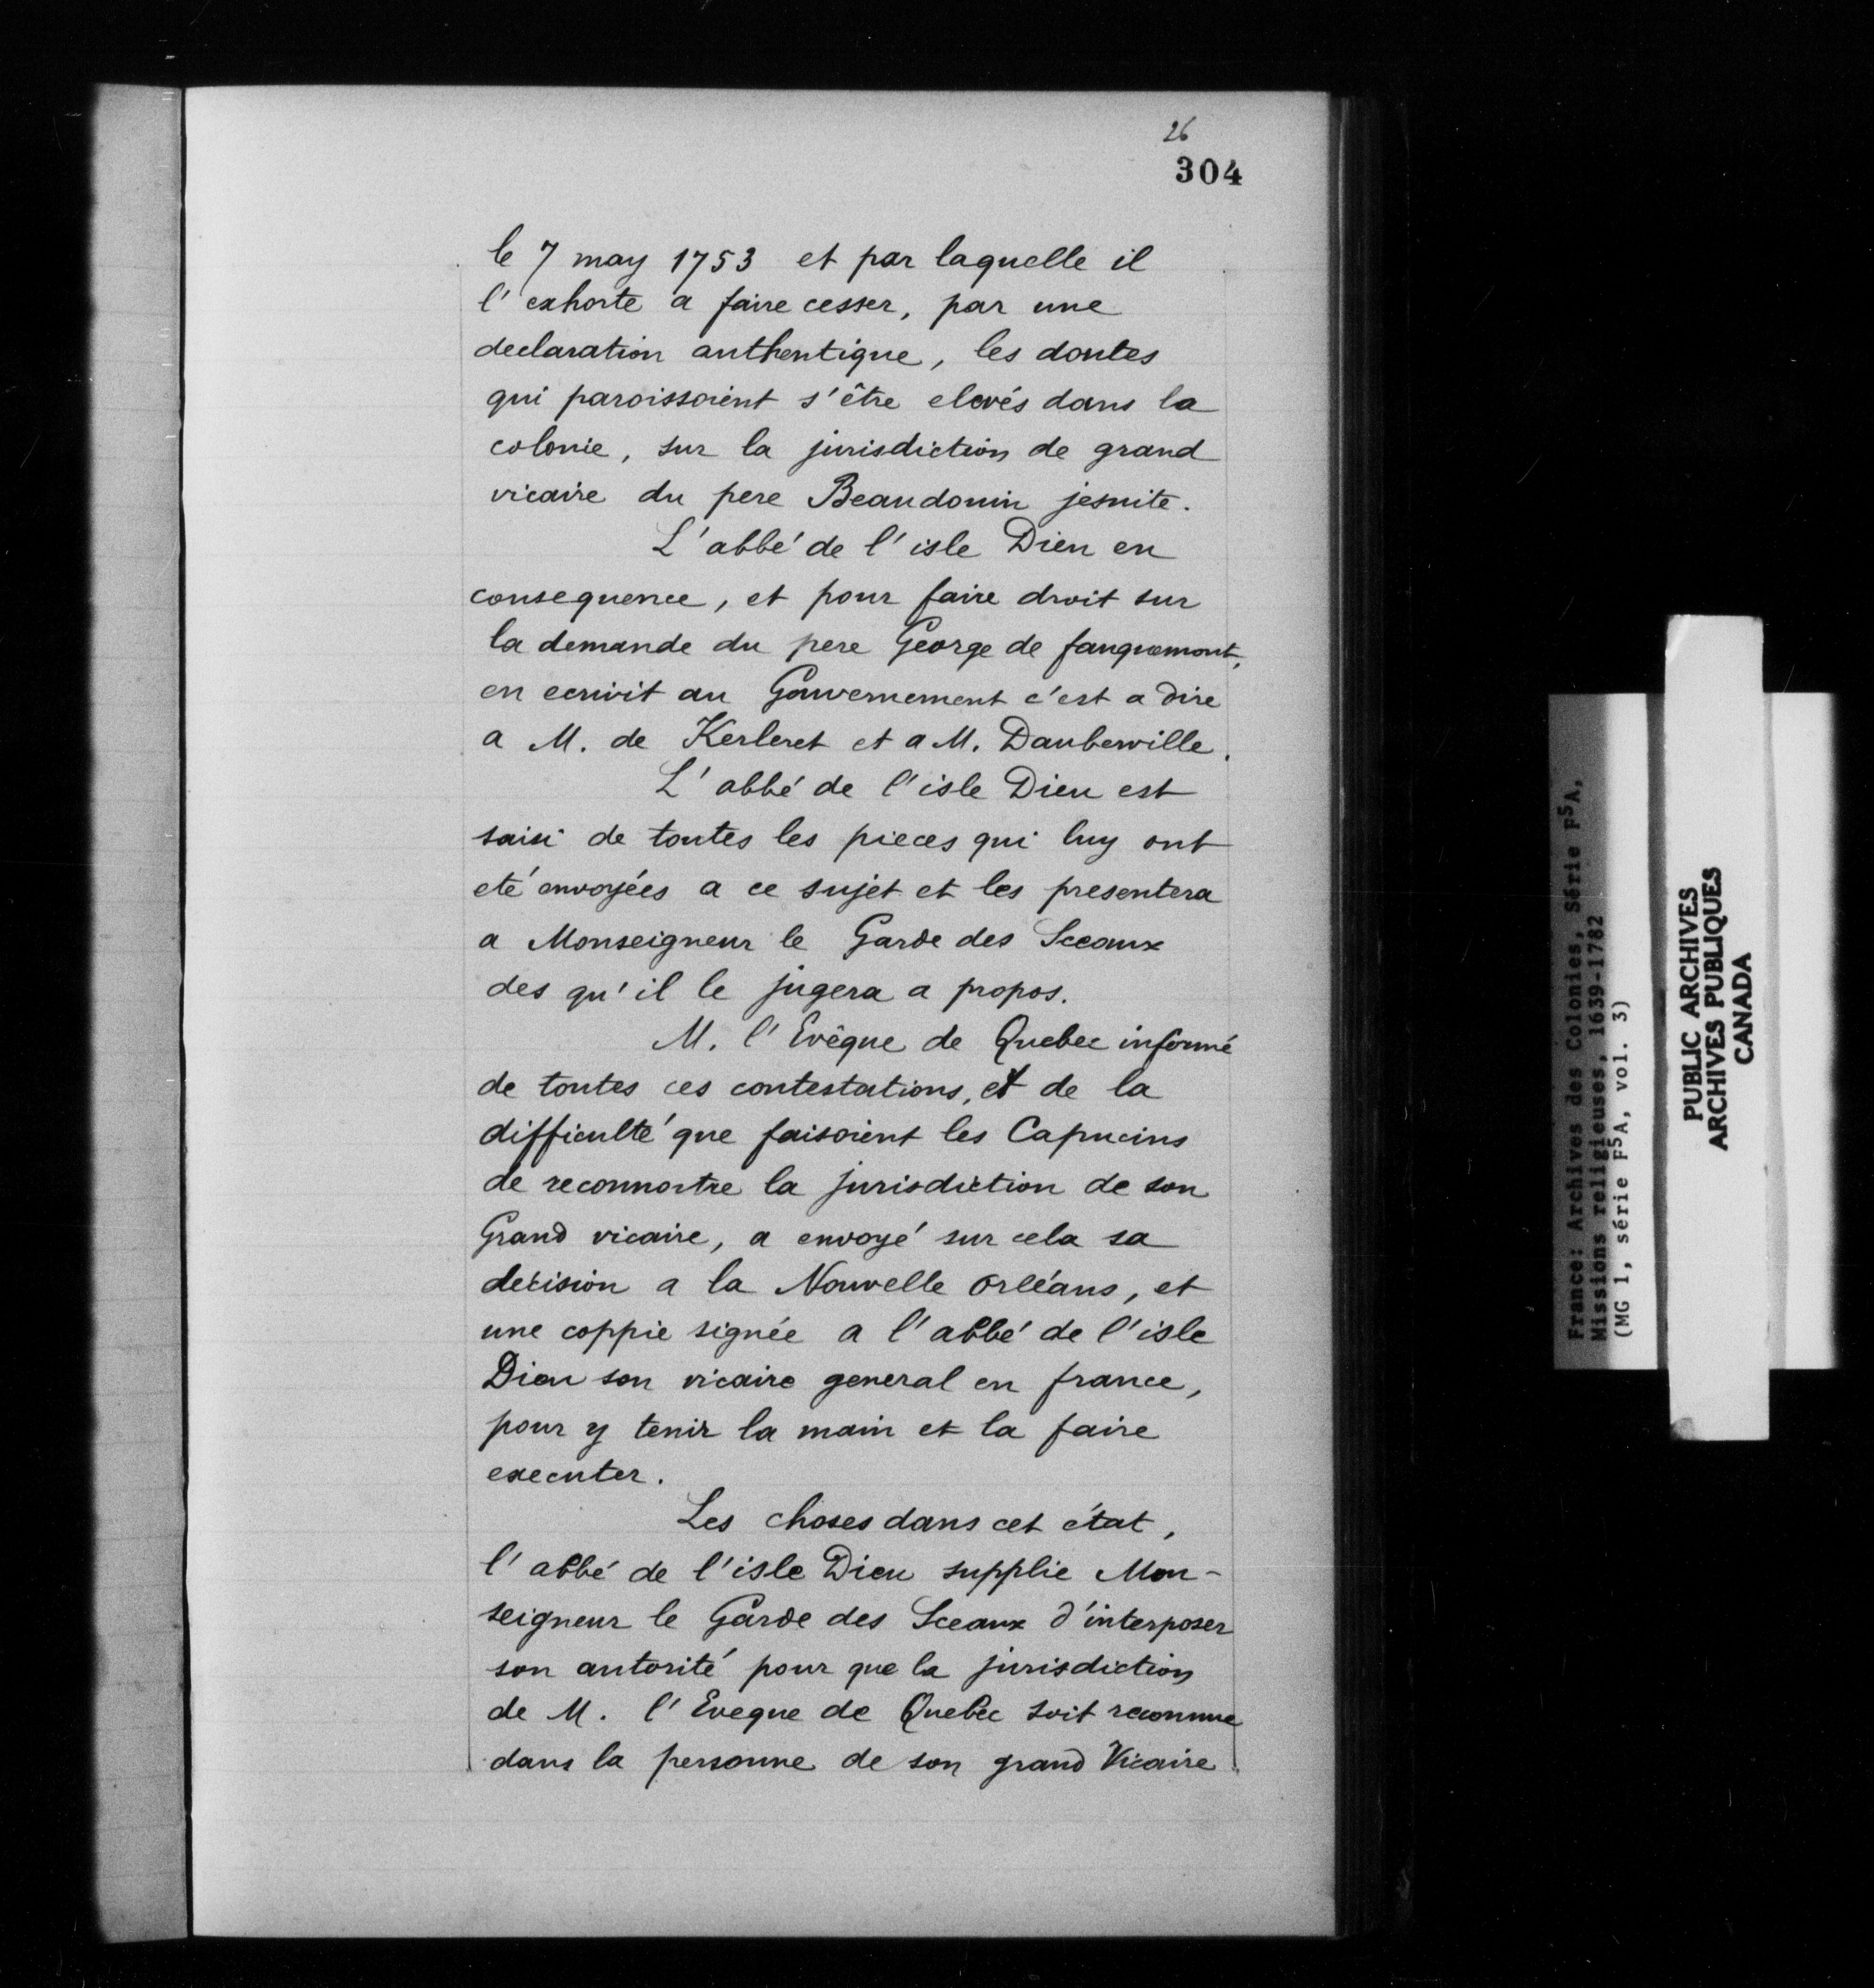 26
304
le 7 may 1753 et par laquelle il
l'exhorte a faire cesser, par une
declaration authentique, les doutes
qui paroissoient s'être elevés dans la
colonie, sur la jurisdiction de grand
vicaire du pere Beaudouin jesuite.
L'abbé de l'isle Dieu en
consequence, et pour faire droit sur
la demande du pere George de fauquemont,
en ecrivit au Gouvernement c'est a dire
a M. de Kerleret et a M. Dauberville.
L'abbé de l'isle Dieu est
saisi de toutes les pieces qui luy ont
eté envoyées a ce sujet et les presentera
a Monseigneur le Garde des Sceaux
des qu'il le jugera a propos.
M. l'Evêque de Quebec informé
de toutes ces contestations, et de la
difficulté que faisoient les Capucins
de reconnoitre la jurisdiction de son
Grand vicaire, a envoyé sur cela sa
decision a la Nouvelle Orléans, et
une coppie signée a l'abbé de l'isle
Dieu son vicaire general en france,
pour y tenir la main et la faire
executer.
Les choses dans cet état,
l'abbé de l'isle Dieu supplie Mon-
seigneur le Garde des Sceaux d'interposer
son autorité pour que la jurisdiction
de M. l'Eveque de Quebec soit reconnue
dans la personne de son grand Vicaire
France: Archives des Colonies, Série F5A,
Missions religieuses, 1639-1782
(MG 1, série F5A, vol. 3)
PUBLIC ARCHIVES
ARCHIVES PUBLIQUES
CANADA